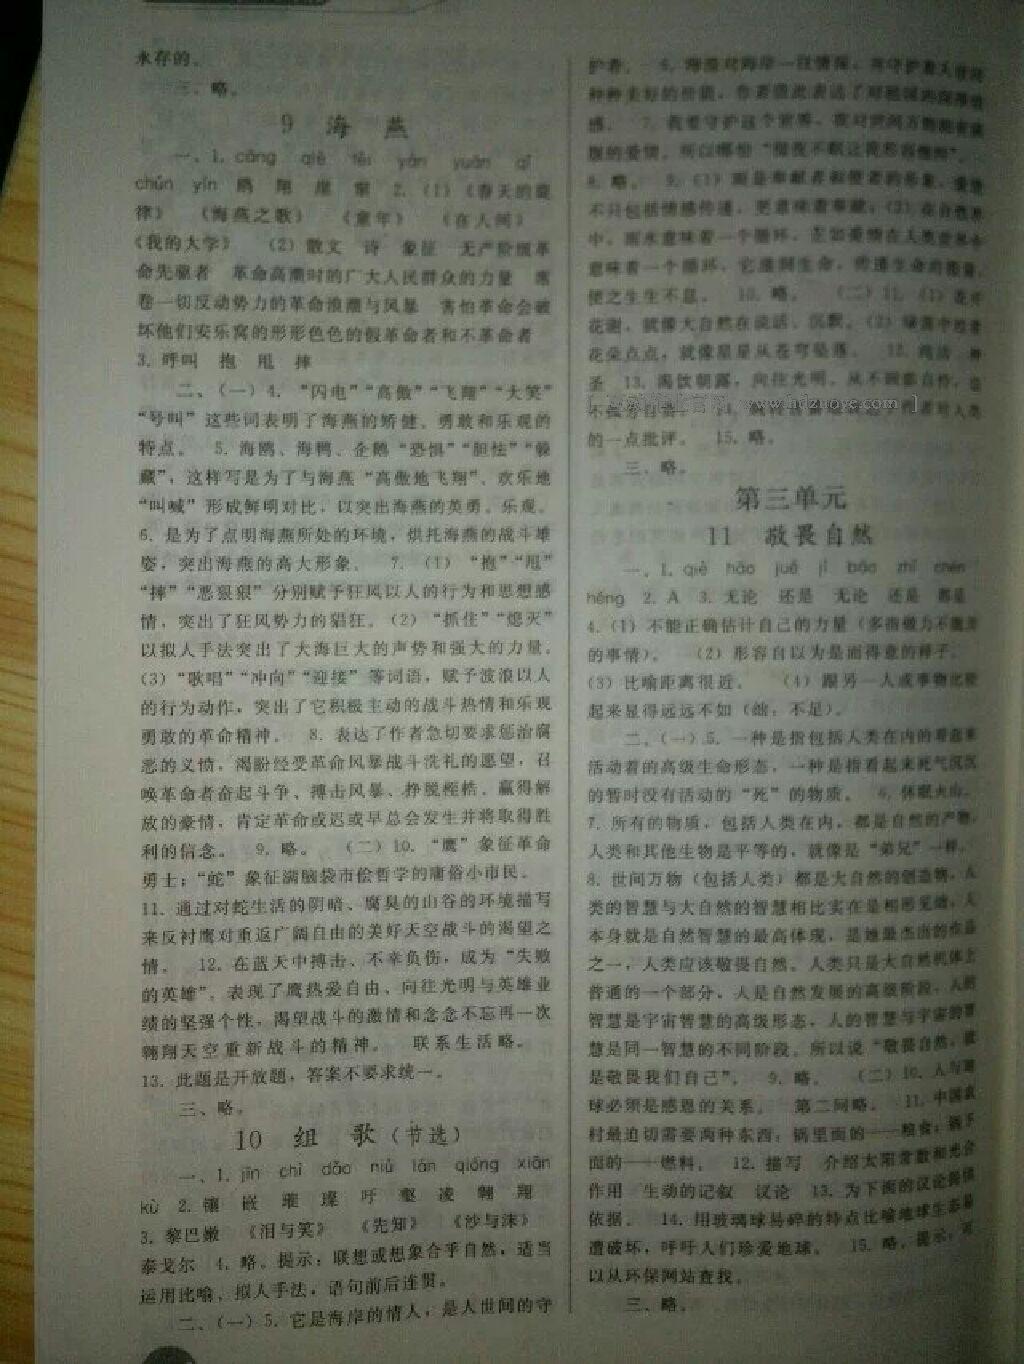 永存的。
三、略。
9 海 燕
一、1. cāng qiè yán yuán
chún yín 翔 崖 2.(1)《春天的旋
律》 《海燕之歌》 《童年》 《在人间》
《我的大学》 (2)散文 诗 象征 无产阶级革
命先驱者 革命高潮时的广大人民群众的力量 席
卷一切反动势力的革命浪潮与风暴 害怕革命会破
坏他们安乐窝的形形色色的假革命者和不革命者
3. 呼叫 抱 甩 摔
二、(一)4. “闪电”“高傲”“飞翔”“大笑”
“号叫”这些词表明了海燕的矫健、勇敢和乐观的
特点。 5. 海鸥、海鸭、企鹅“恐惧”“胆怯”“躲
藏”，这样写是为了与海燕“高傲地飞翔”、欢乐地
“叫喊”形成鲜明对比，以突出海燕的英勇、乐观。
6. 是为了点明海燕所处的环境，烘托海燕的战斗雄
姿，突出海燕的高大形象。 7.(1)“抱”“甩”
“摔”“恶狠狠”分别赋予狂风以人的行为和思想感
情，突出了狂风势力的猖狂。(2)“抓住”“熄灭”
以拟人手法突出了大海巨大的声势和强大的力量。
(3)“歌唱”“冲向”“迎接”等词语，赋予波浪以人
的行为动作，突出了它积极主动的战斗热情和乐观
勇敢的革命精神。 8. 表达了作者急切要求惩治腐
恶的义愤，渴盼经受革命风暴战斗洗礼的愿望，召
唤革命者奋起斗争、搏击风暴、挣脱桎梏、赢得解
放的豪情，肯定革命或迟或早总会发生并将取得胜
利的信念。 9. 略。 (二)10. “鹰”象征革命
勇士；“蛇”象征满脑袋市侩哲学的庸俗小市民。
11. 通过对蛇生活的阴暗、腐臭的山谷的环境描写
来反衬鹰对重返广阔自由的美好天空战斗的渴望之
情。 12. 在蓝天中搏击、不幸负伤，成为“失败
的英雄”，表现了鹰热爱自由、向往光明与英雄业
绩的坚强个性，渴望战斗的激情和念念不忘再一次
翱翔天空重新战斗的精神。 联系生活略。
13. 此题是开放题，答案不要求统一。
三、略。
10 组 歌(节选)
一、1. jìn chì dǎo niǔ lán qióng xiān
kù 2. 镶 嵌 璀 璨 吁 壑 凌 翱 翔
3. 黎巴嫩 《泪与笑》 《先知》 《沙与沫》
泰戈尔 4. 略。提示：联想或想象合乎自然，适当
运用比喻、拟人手法，语句前后连贯。
二、(一)5. 它是海岸的情人，是人世间的守
护者。 6. 海浪对海岸一往情深，
种种美好的价值，作者借此表达了对祖国的深厚情
感。 7. 我要守护这个世界，我对世间万物拥有
的爱情。所以哪怕“彻夜不眠让我形容憔悴”。
8. 略。 9.(1)雨是奉献者和使者的形象，爱情
不只包括情感传递，更意味着奉献；(2)在自然界
中，雨水意味着一个循环，正如爱情在人类世界中
意味着一个循环，它滋润生命，传递生命的能量，
使之生生不息。 10. 略。 (二)11.(1)花开
花谢，就像大自然在说话、沉默。(2)绿茵中缀着
花朵点点，就像星星从苍穹坠落。 12. 纯洁 神
圣 13. 渴饮朝露，向往光明，从不顾影自怜，也
不孤芳自赏。 14.
的一点批评。 15. 略。
www.adznoye.com
三、略。
第三单元
11 敬畏自然
一、1. qiè hào juě jǐ bào zhī chén
héng 2. A 3. 无论 还是 无论 还是 都是
4.(1)不能正确估计自己的力量(多指做力不能及
的事情)。 (2)形容自以为是而得意的样子。
(3)比喻距离很近。 (4)跟另一人或事物比较
起来显得远远不如(绌：不足)。
二、(一)5. 一种是指包括人类在内的尋意
活动着的高级生命形态，一种是指看起来死气沉沉
的暂时没有活动的“死”的物质。 6. 休眠火山。
7. 所有的物质，包括人类在内，都是自然的产物，
人类和其他生物是平等的，就像是“弟兄”一样。
8. 世间万物(包括人类)都是大自然的创造物，人
类的智慧与大自然的智慧相比实在是相形见绌，人
本身就是自然智慧的最高体现，是她最杰出的作品
之一，人类应该敬畏自然。人类只是大自然机体上
普通的一个部分，人是自然发展的高级阶段，人的
智慧是宇宙智慧的高级形态，人的智慧与宇宙的智
慧是同一智慧的不同阶段。所以说“敬畏自然，就
是敬畏我们自己”。 9. 略。 (二)10. 人与地
球必须是感恩的关系。 第二问略。 11. 中国农
村最迫切需要两种东西：锅里面的——粮食；锅下
面的——燃料。 12. 描写 介绍太阳常数和光合
作用 生动的记叙 议论 13. 为下面的议论提供
依据。 14. 用玻璃球易碎的特点比喻地球生态易
遭破坏，呼吁人们珍爱地球。 15. 略。提示：可
以从环保网站查找。
三、略。